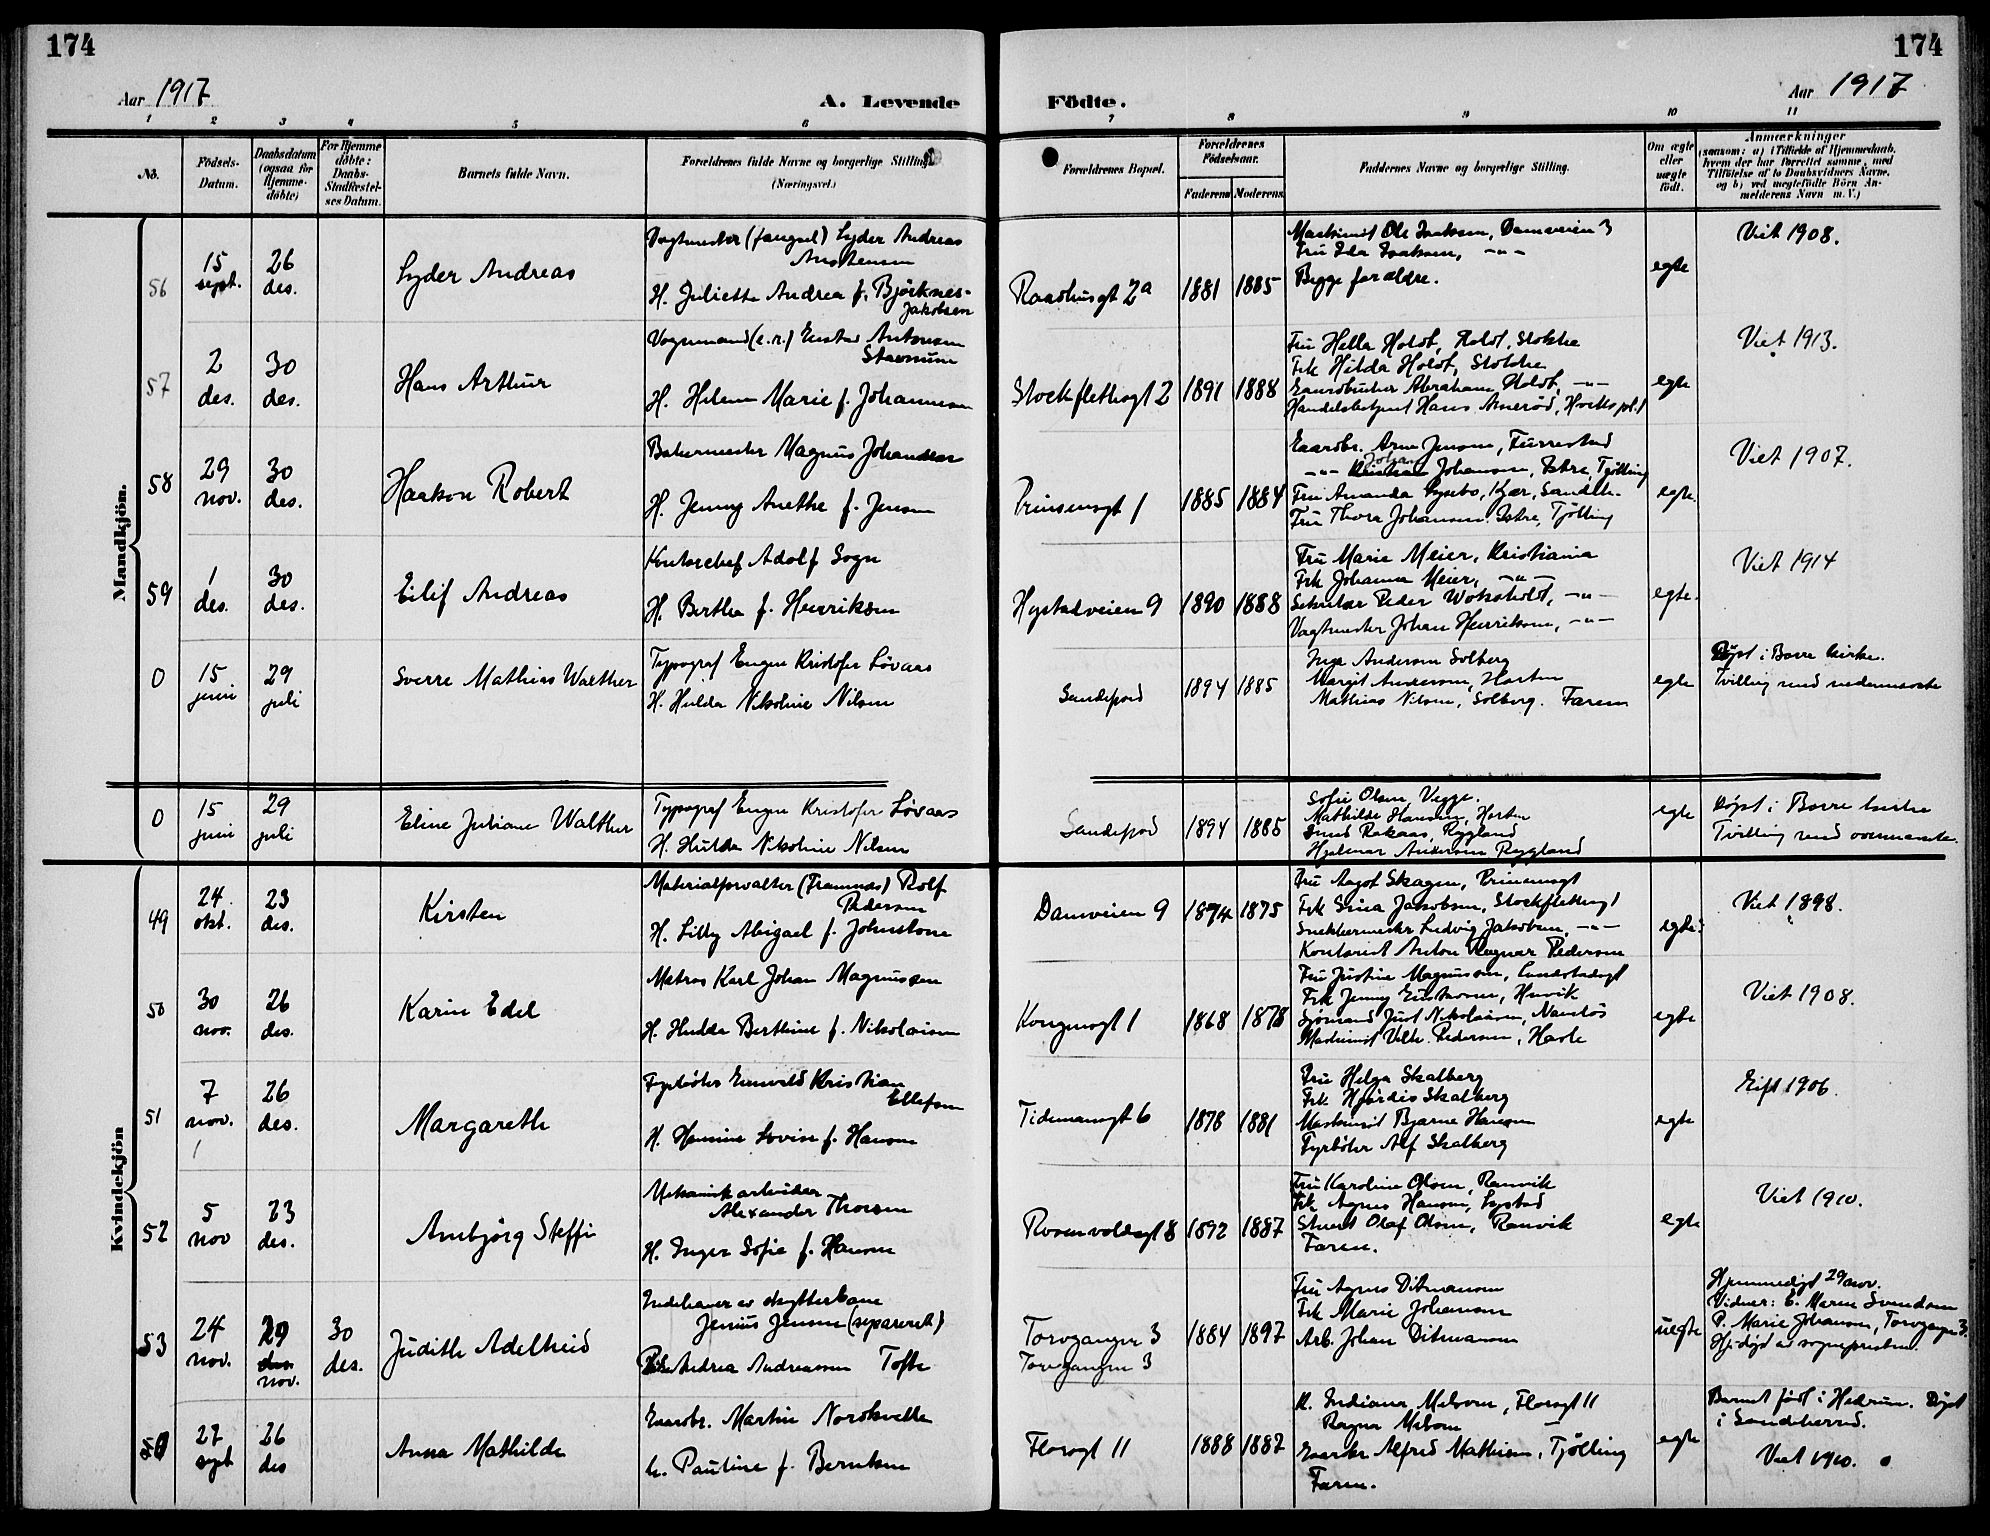 174
174
Aar 1917
A. Levende
Födte.
Aar 1917
1 2 3 4 5 6 7 8 9 10 11
No.
Födsels-Datum.
Daabsdatum (ogsaa for Hjemme-döbte)
For Hjemme döbte: Daabs-Stadfæstel-ses Datum.
Barnets fulde Navn.
Forældrenes fulde Navne og borgerlige Stilling
(Næringsvei.)
Forældrenes Bopæl.
Forældrenes Födselsaar.
Faderens
Moderens
Faddernes Navne og borgerlige Stilling.
Om ægte eller uægte födt.
Anmærkninger
(saasom: a) i Tilfælde af Hjemmedaab, hvem der har forrettet samme, med Tilföielse af to Daabsvidners Navne, og b) ved uægtefödte Börn An-melderens Navn m. V.)
Mandkjön.
56
15 sept.
26 des.
Lyder Andreas
Vagtmester (fængsel) Lyder Andreas
H. Juliette Andrea f. Bjerknes-Jakobsen
Raadhusgt 2a
1881
1885
Maskinist Ole Isaksen, Damveien 3
Fru Ida Isaksen, -"-
Begge forældre.
egte
Viet 1908.
57
2 des.
30 des.
Hans Arthur
Vognmand (e.r.) Antonsen
H. Helene Marie f. Johannesen
Stockflethsgt 2
1891
1888
Fru Hella Holdt, Holdt, Stokke
Frk Hilda Holdt, Stokke
Gaardbruker Abraham Holdt, -"-
Handelsbetjent Hans
egte
Viet 1913.
58
29 nov.
30 des.
Haakon Robert
Bakermester Magnus Johansen
H. Jenny Anethe f. Jensen
Prinsensgt 1
1885
1884
Gaardbr. Arne Jensen, Furrestad
-"- Johan Johansen, Istre, Tjølling
Fru Amanda Lysebo, Kjær, Sandeh.
Fru Thora Johansen Istre, Tjølling
egte
Viet 1907.
59
1 des.
30 des.
Eilif Andreas
Kontorchef Adolf Sogn
H. Berthe f. Henriksen
Hystadveien 9
1890
1888
Fru Marie Meier, Kristiania
Frk Johanna Meier, -"-
Sekretær Peder -"-
Vagtmester Johan Henriksen, -"-
egte.
Viet 1914
0
15 juni
29 juli
Sverre Mathias Walther
Typograf Eugen Kristofer Løvaas
H. Hulda Nikoline Nilsen
Sandefjord
1894
1885
Inga Andersen Solberg
Margit Andersen, Horten
Mathias Nilsen, Solberg. Faren
egte
Døpt i Borre kirke.
Tvilling med nedennævnte
0
15 juni
29 juli
Eline Juliane Walther
Typograf Eugen Kristofer Løvaas
H. Hulda Nikoline Nilsen
Sandefjord
1894
1885
Sofie Olsen Vegge.
Mathilde Hansen, Horten
Rakaas, Rygland
Hjalmar Andersen Rygland
egte
Døpt i Borre kirke
Tvilling med ovennævnte.
Kvindekjön
49
24 okt.
23 des.
Kirsten
Materialforvalter (Framnæs) Rolf Pedersen
H. Lilly Abigael f. Johnstone
Damveien 9
1874
1875
Fru Aagot Skagen, Prinsensgt
Frk Stina Jakobsen, Stockflethsgt 1
Snekkermester Ludvig Jakobsen, -"-
Kontorist Anton Ragnar Pedersen
egte
Viet 1898.
50
30 nov.
26 des.
Karin Edel
Matros Karl Johan Magnussen
H. Hulda Berthine f. Nikolaisen
Kongensgt 1
1868
1878
Fru Justine Magnussen, Landstadsgt
Frk Jenny Gustavsen, Huvik
Sjømand Just Nikolaisen,
Maskinist Vilh. Pedersen, Hasle
egte
Viet 1908.
51
7 nov.
26 des.
Margareth
Fyrbøter Kristian Ellefsen
H. Hansine Lovise f. Hansen
Tidemansgt 6
1878
1881
Fru Helga Skalberg
Frk. Hjørdis Skalberg
Maskinist Bjarne Hansen
Fyrbøter Alf Skalberg
egte
Gift 1906.
52
5 nov
23 des.
Ambjørg Steffi
Mekanisk arbeider Alexander Thorsen
H. Inger Sofie f. Hansen
Rosenvoldsgt 8
1892
1887
Fru Karoline Olsen, Ranvik
Frk Agnes Hansen, Lystad
Stuert Olaf Olsen, Ranvik
Faren.
egte
Viet 1910.
53
24 nov.
29 nov.
30 des.
Judith Adelheid
Indehaver av skytterbane
Jenius Jensen (separert)
Pike Andrea Andreassen Tofte
Torvgangen 3
Torvgangen 3
1884
1897
Fru Agnes Ditmansen
Frk Marie Johansen
Arb. Johan Ditmansen
uegte
Hjemmedøpt 29 nov.
Vidner: E. Maren Svendsen
P. Marie Johansen, Torvgangen 3.
Hj.døpt av sognepresten.
27 sept
26 des
Anna Mathilde
Gaardbr. Martin Nordkvelle
h. Pauline f. Berntsen
Florsgt 11
1888
1887
K. Indiana Melsom, Florsgt 11
Ragna Melsom —
Gaardbr Alfred Mathisen, Tjølling
Faren.
egte
Barnet født i Hedrum. Døpt
i Sandeherred.
Viet 1910.